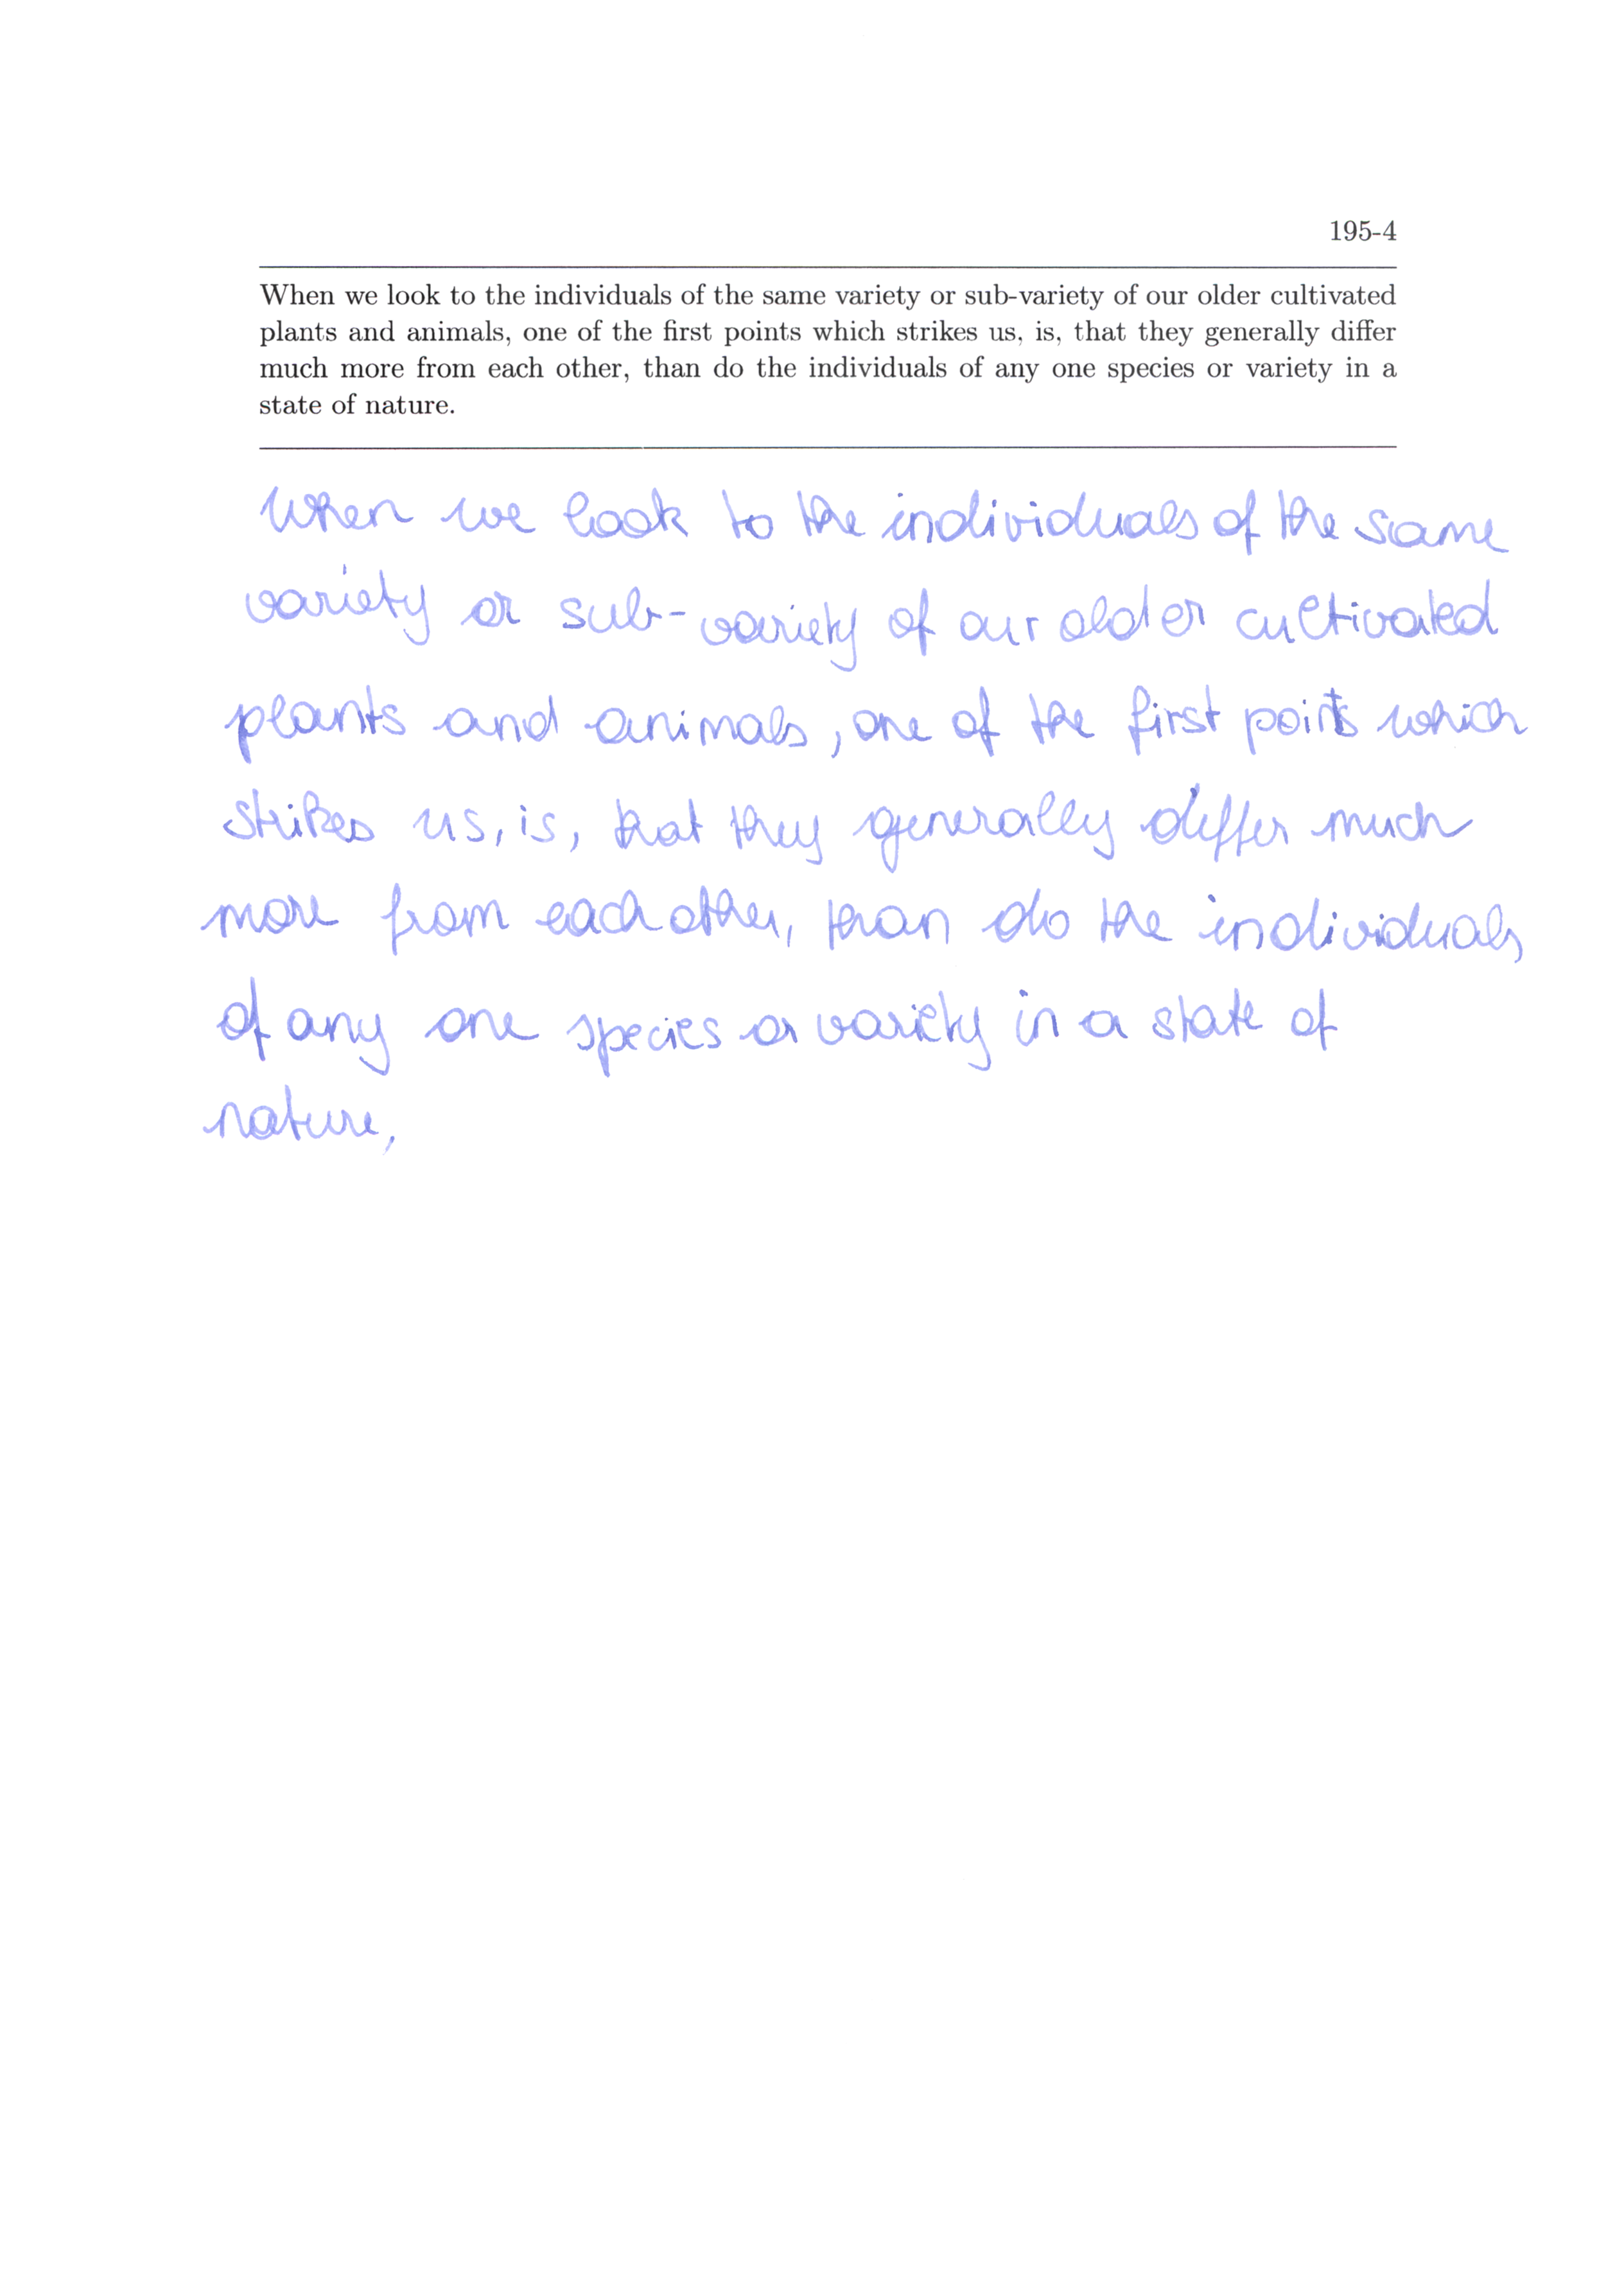 195-4
When we look to the individuals of the same variety or sub-variety of our older cultivated
plants and animals, one of the first points which strikes us, is, that they generally differ
much more from each other, than do the individuals of any one species or variety in a
state of nature.
When we look to the individuals of the same
variety or sub-variety of our older cultivated
plants and animals, one of the first points which
strikes us, is, that they generally differ much
more from each other, than do the individuals
of any one species or variety in a state of
nature,